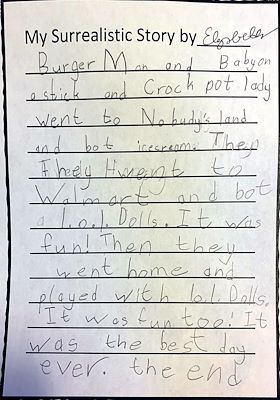 My Surrealistic Story by
Burger Man and Babyon
a stick and Crock pot lady
went to Nobudy's land
and bot icescream. They
They went to
Walmart and bot
a l.o.l. Dolls. It was
fun! Then they
went home and
played with l.o.l. Dolls.
It was fun too! It
was the best day
ever. the end